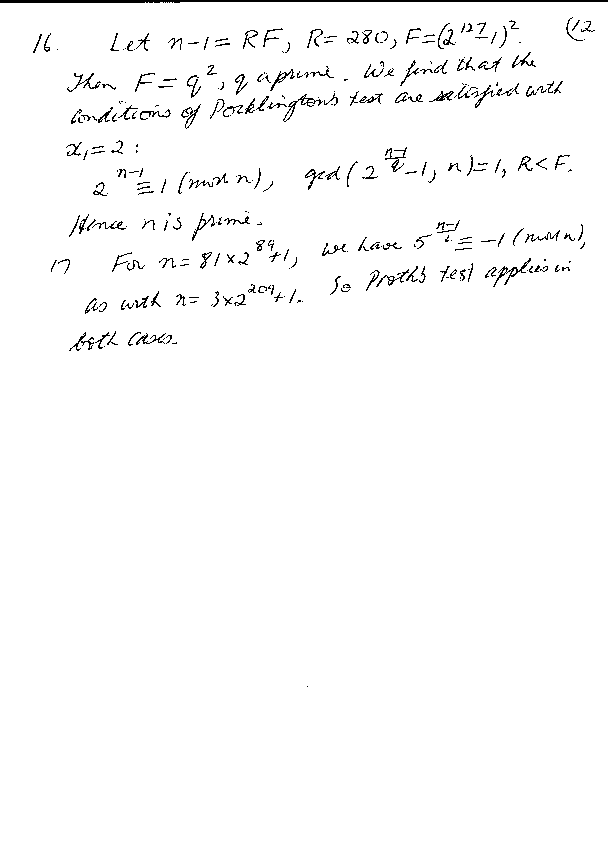 (12
16. Let n-1 = RF, R = 280, F = (2^127-1)^2.
Then F = q^2, q a prime. We find that the
conditions of Pocklington's test are satisfied with
x_1 = 2 :
2^{n-1} ≡ 1 (mod n), gcd(2^{\frac{n-1}{q}}-1, n) = 1, R < F.
Hence n is prime.
17 For n = 81×2^89+1, we have 5^{\frac{n-1}{2}} ≡ -1 (mod n),
as with n = 3×2^209+1. So Proth's test applies in
both cases.